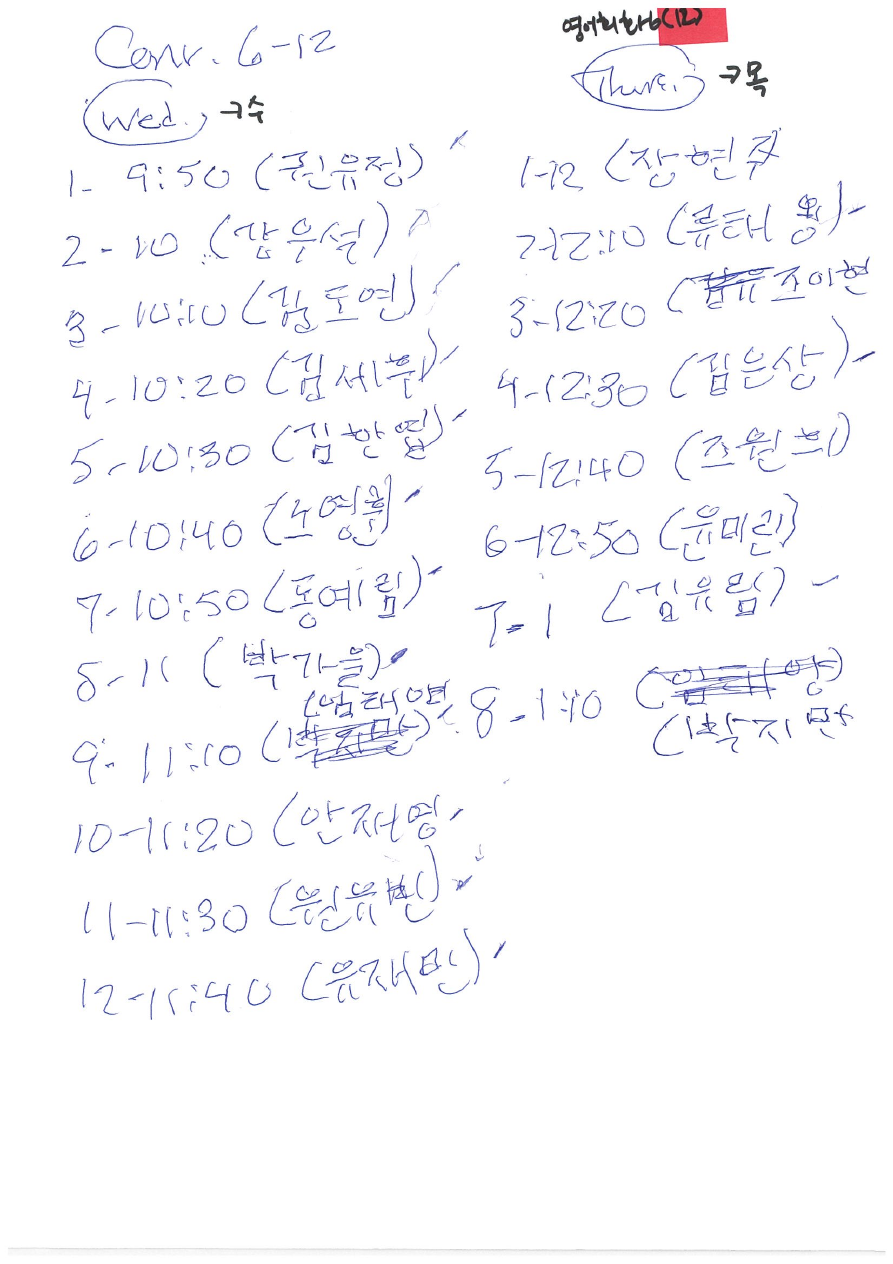 Conv. 6-12
Wed. →수
1- 9:50 (권유정)
2-10 (김우설)
3-10:10 (김도연)
4-10:20 (김세원)
5-10:30 (김한엽)
6-10:40 (노영훈)
7-10:50 (동예림)
8-11 (박가을)
(남태연
9-11:10
10-11:20 (안재영
11-11:30 (원유빈)
12-11:40 (유재민)
영어회화6(12)
Thurs. →목
1-12 (장현주
2-12:10 (류태웅)
3-12:20 (조이현
4-12:30 (김은상)
5-12:40 (조원희)
6-12:50 (윤미린)
7-1 (김유림)
8-1:10
(박지민